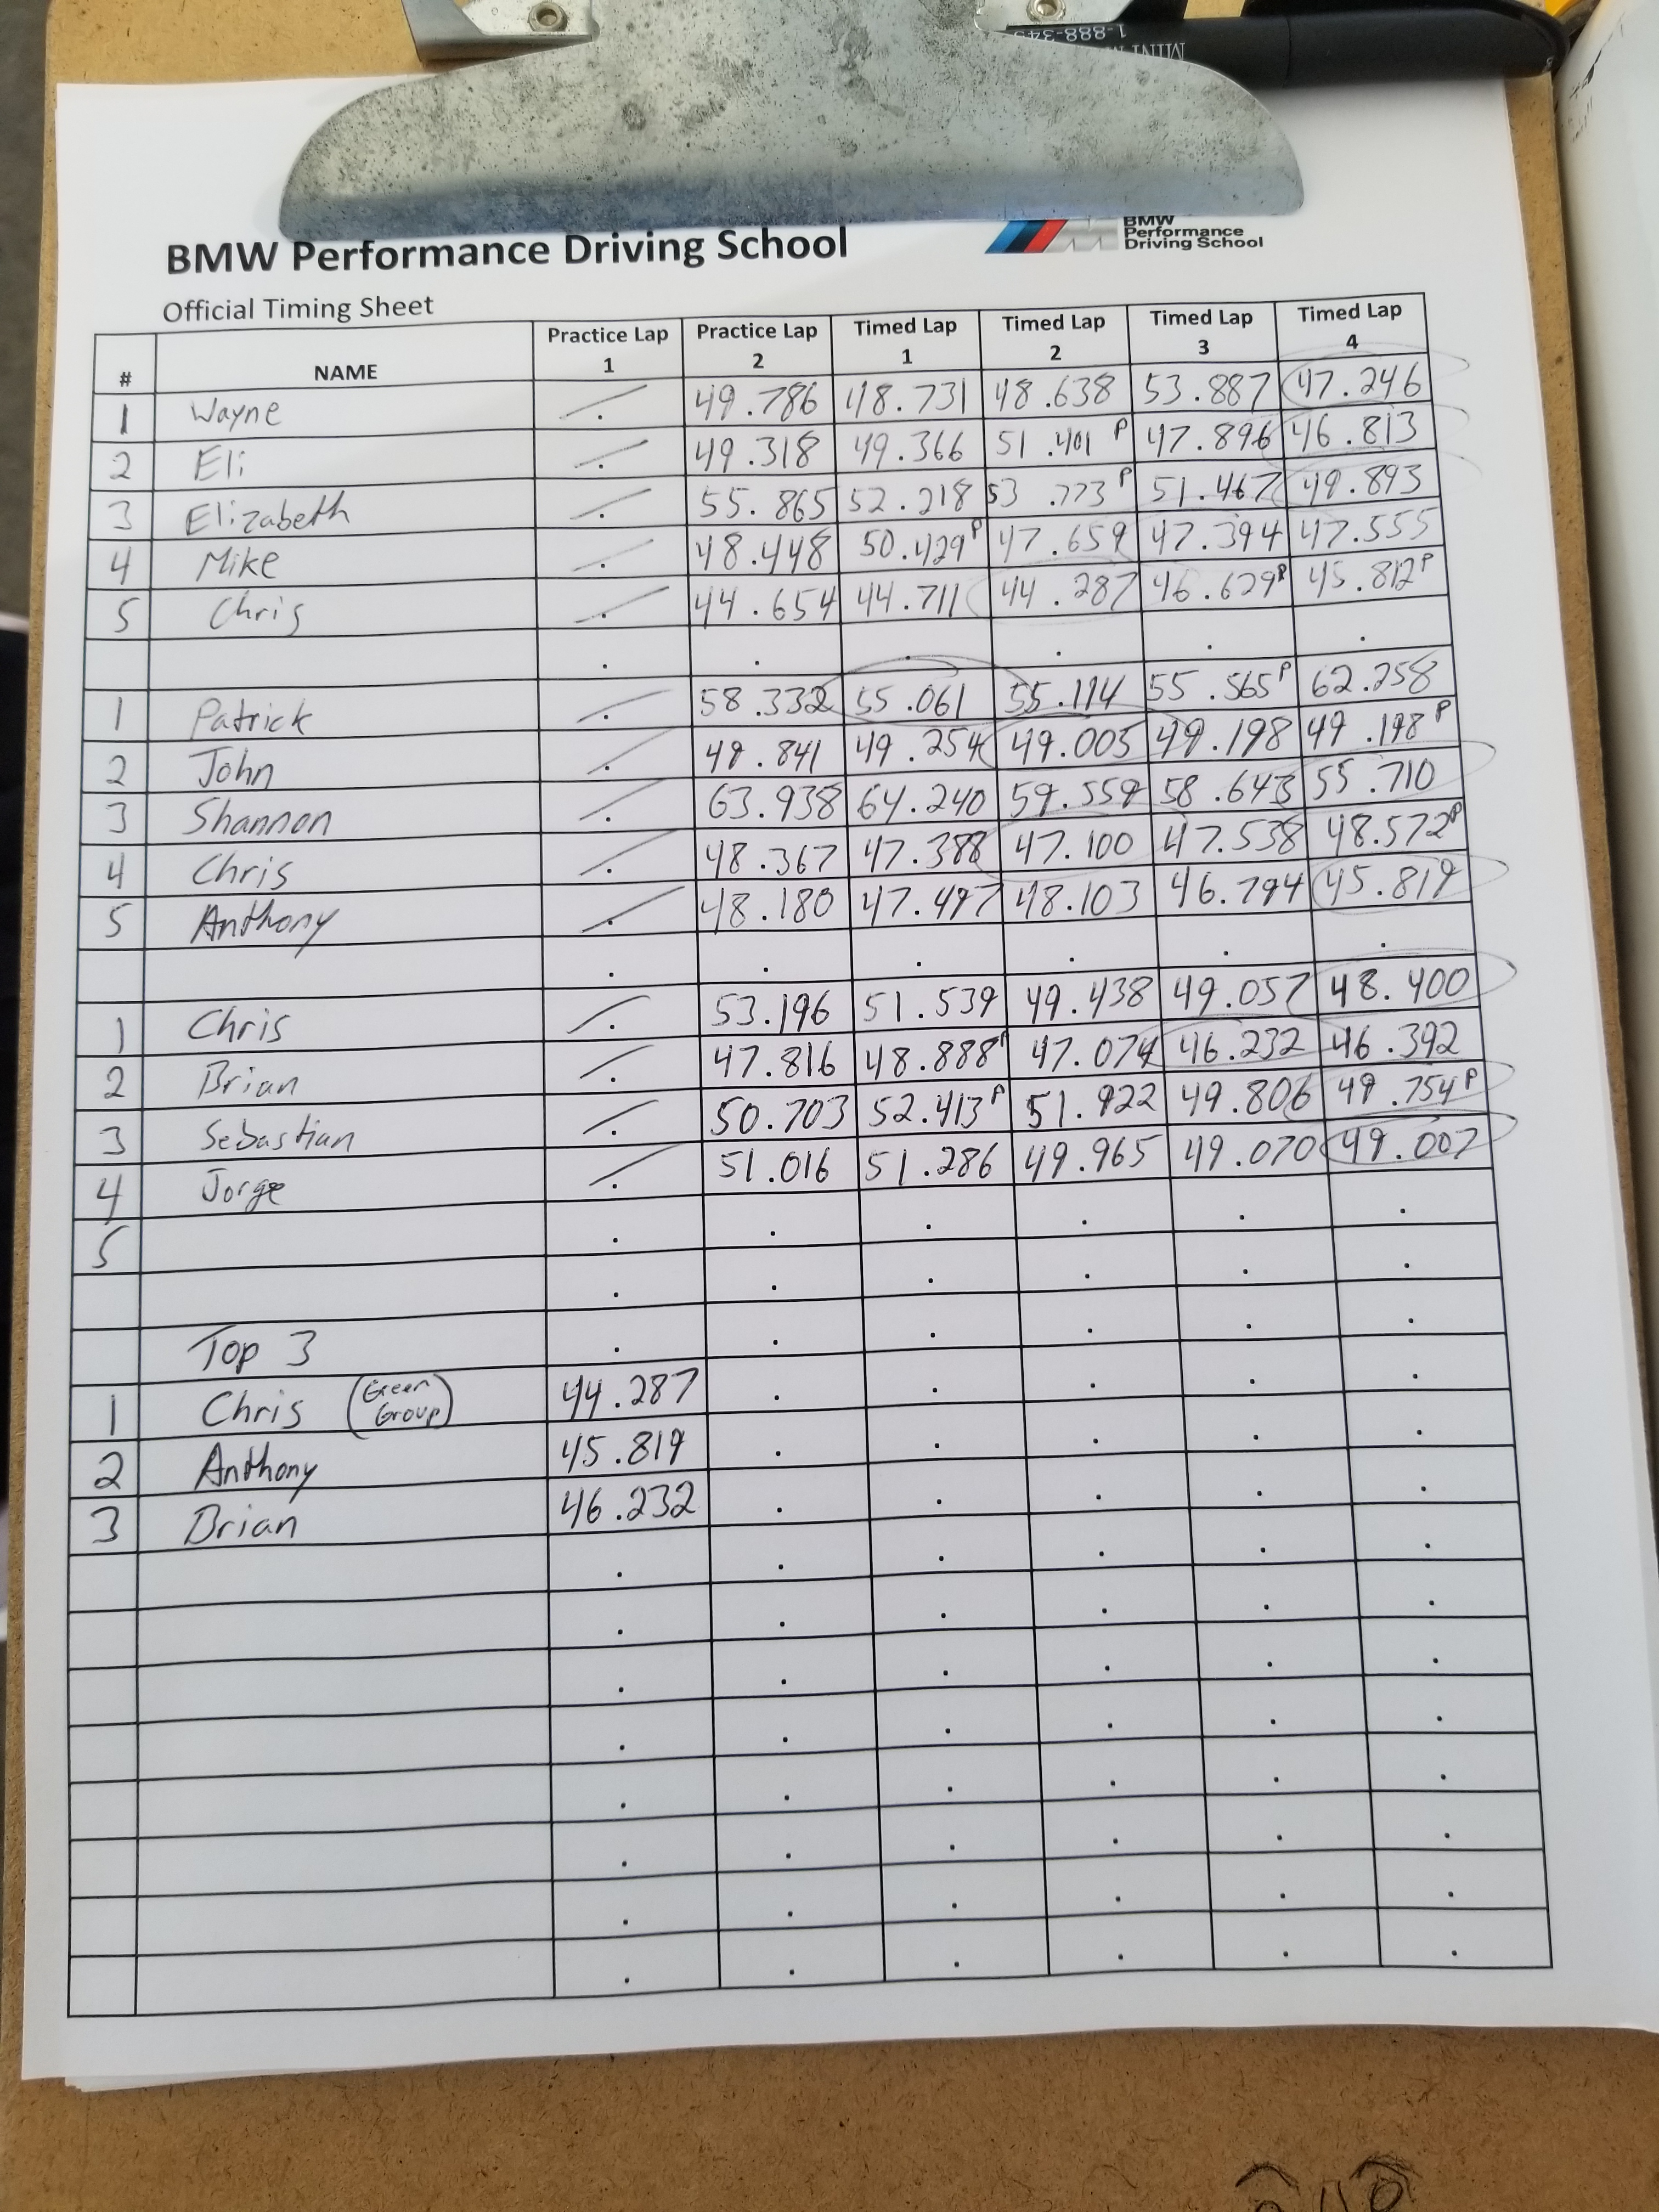 1-888-345
MINI
BMW Performance Driving School
BMW
Performance
Driving School
Official Timing Sheet
# NAME Practice Lap 1 Practice Lap 2 Timed Lap 1 Timed Lap 2 Timed Lap 3 Timed Lap 4
1 Wayne . 49.786 48.731 48.638 53.887 47.246
2 Eli . 49.318 49.366 51.401 P 47.896 46.813
3 Elizabeth . 55.865 52.218 53.773 P 51.467 49.893
4 Mike . 48.448 50.429 P 47.659 47.394 47.555
5 Chris . 44.654 44.711 44.287 46.629 P 45.812 P
1 Patrick . 58.332 55.061 55.114 55.565 P 62.258
2 John . 49.841 49.254 49.005 49.198 49.198 P
3 Shannon . 63.938 64.240 59.559 58.643 55.710
4 Chris . 48.367 47.388 47.100 47.538 48.572 P
5 Anthony . 48.180 47.497 48.103 46.794 45.819
1 Chris . 53.196 51.539 49.438 49.057 48.400
2 Brian . 47.816 48.888 P 47.074 46.232 46.392
3 Sebastian . 50.703 52.413 P 51.922 49.806 49.754 P
4 Jorge . 51.016 51.286 49.965 49.070 49.007
5
Top 3
1 Chris (Green Group) 44.287
2 Anthony 45.819
3 Brian 46.232